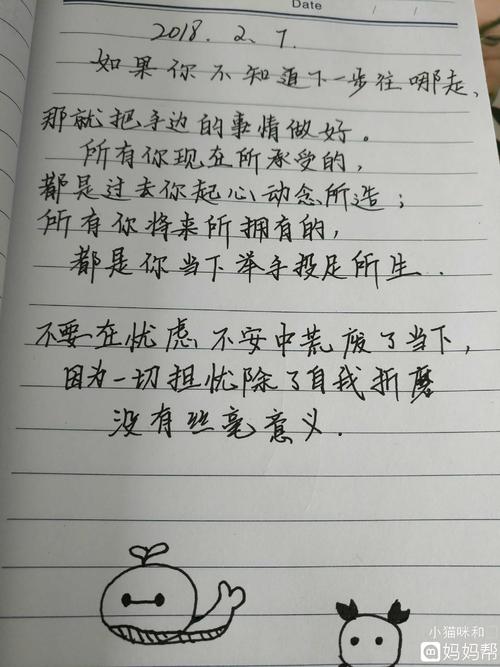 Date / /
2018. 2. 7.
如果你不知道下一步往哪走、
那就把手边的事情做好。
所有你现在所承受的，
都是过去你起心动念所造；
所有你将来所拥有的，
都是你当下举手投足所生..
不要在忧虑不安中荒废了当下，
因为一切担忧除了自我折磨
没有丝毫意义.
小猫咪和
妈妈帮